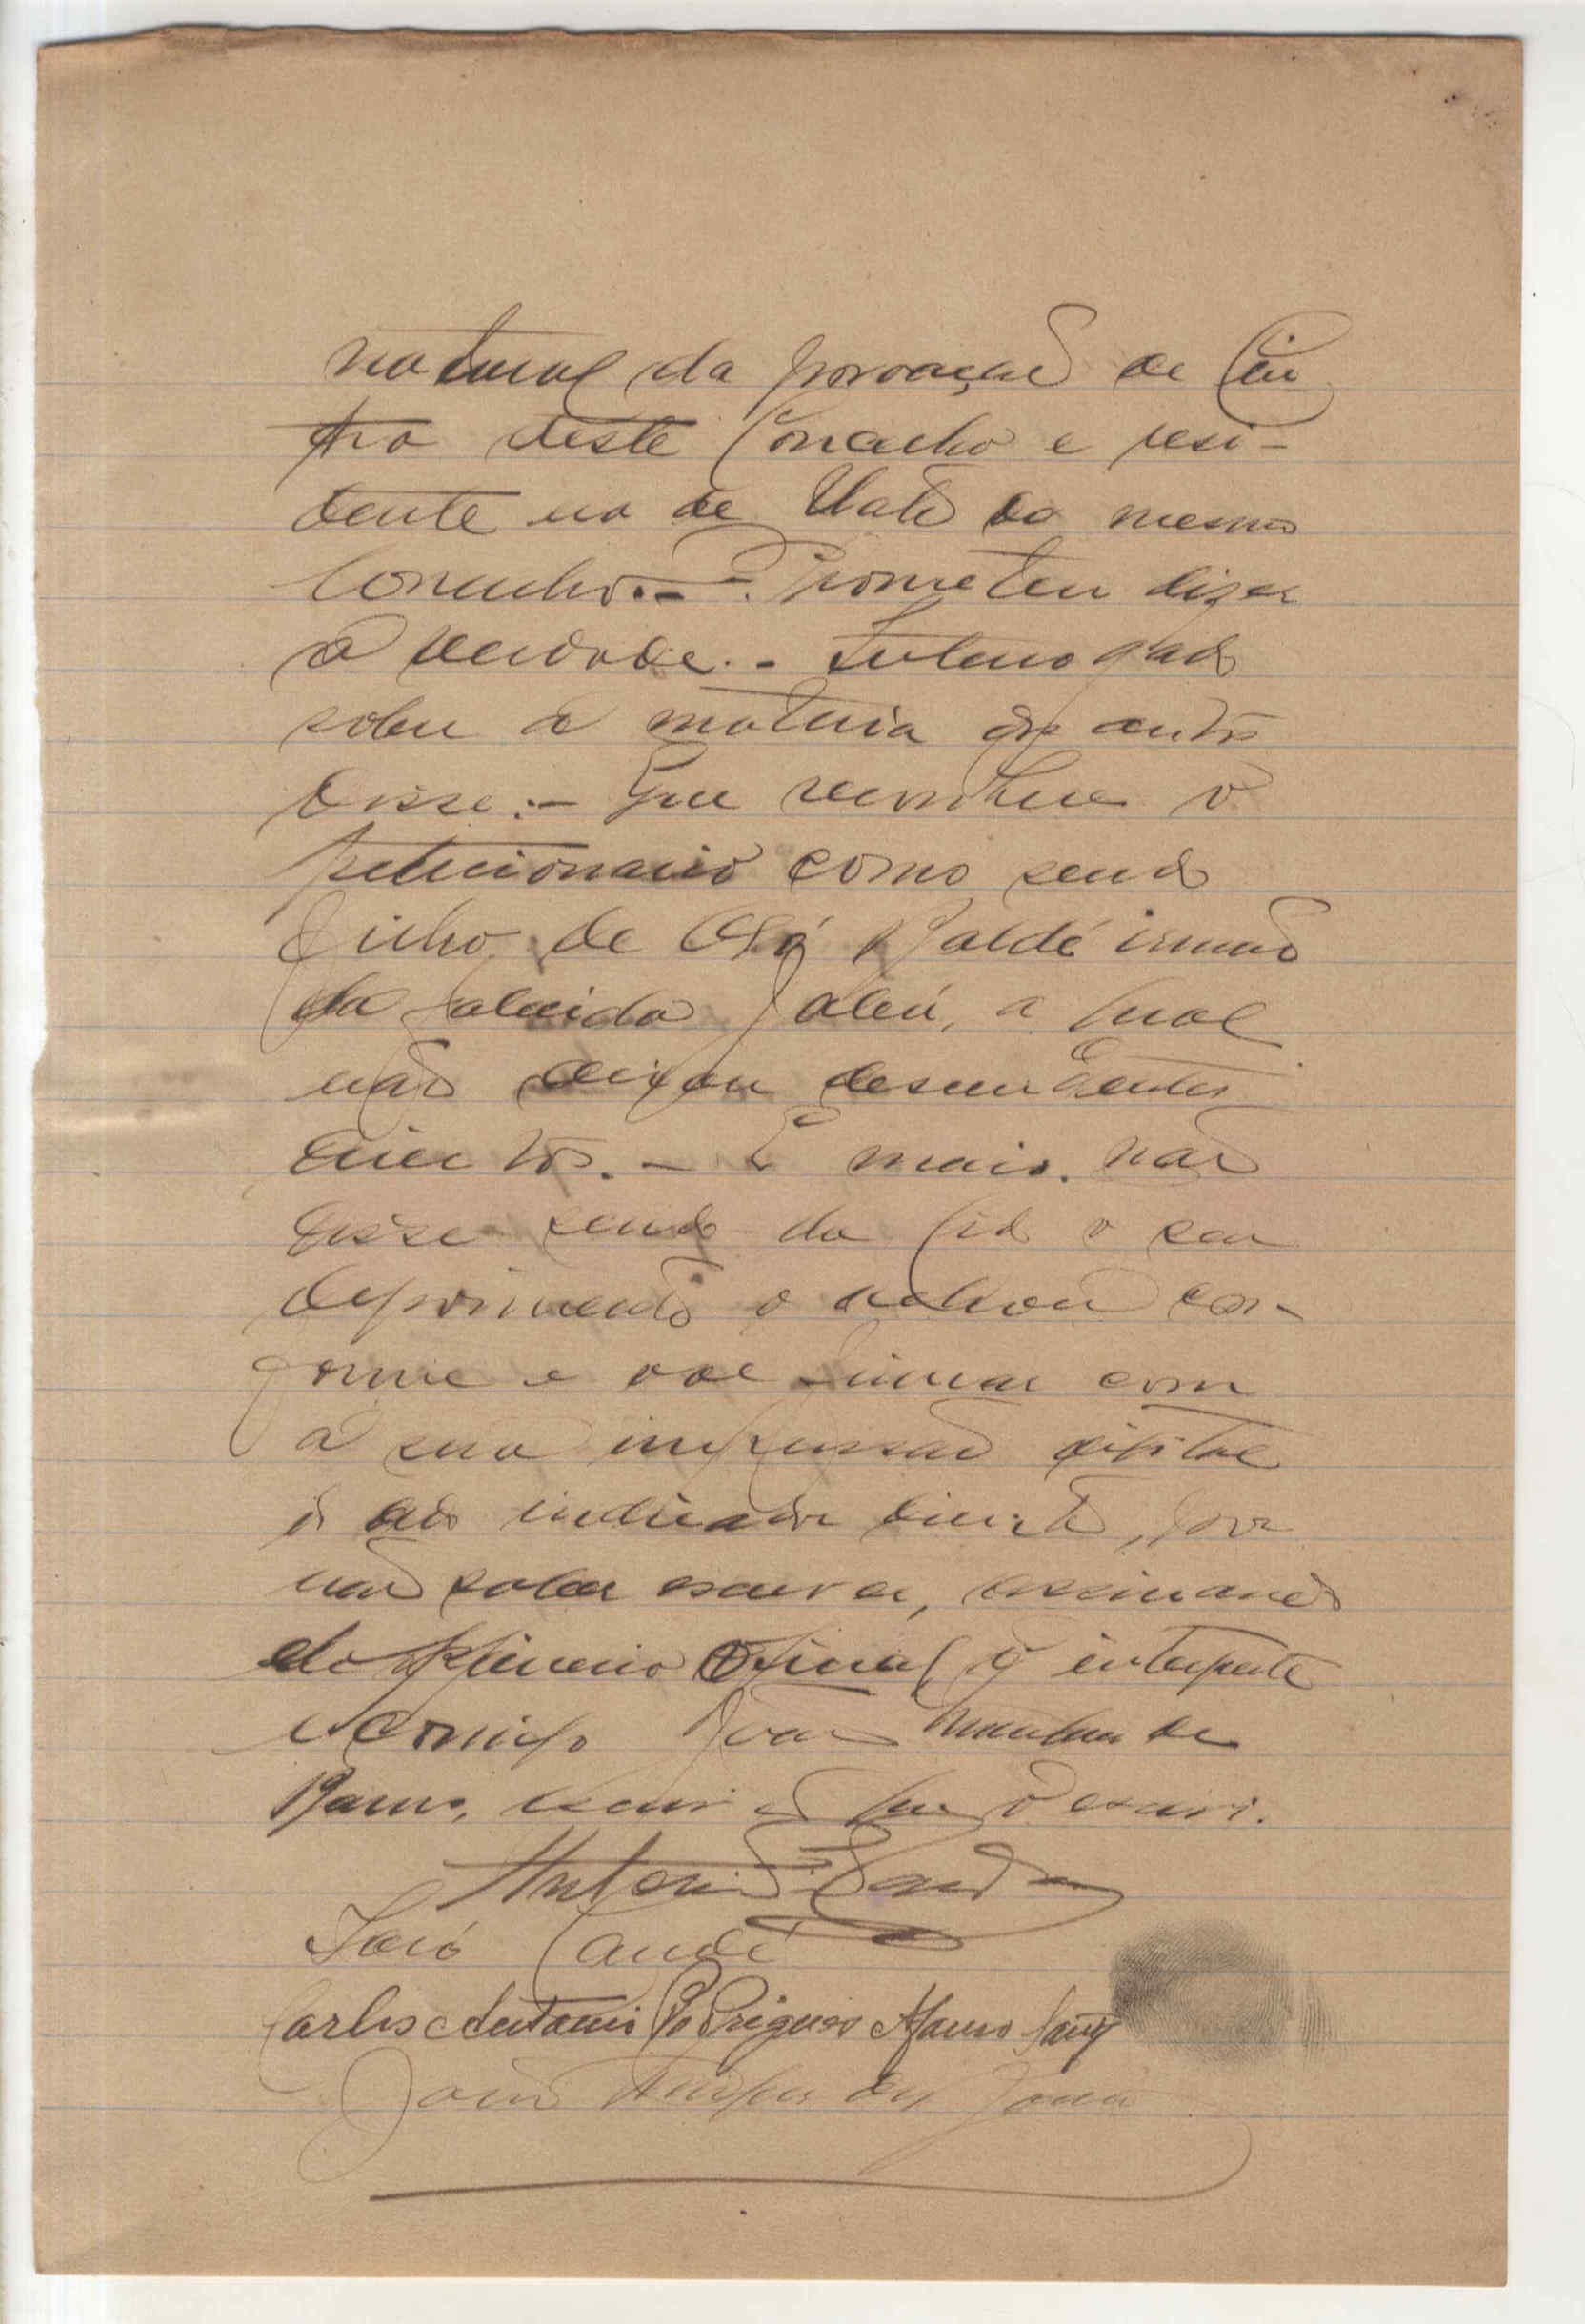 natural da povoação de Cin
tra deste Concelho e resi-
dente na de Uató do mesmo
Concelho. - Prometeu dizer
a verdade. - Interrogado
sobre a materia dos autos
disse: - Que reconhece o
peticionario como sendo
filho de Baldé irmão
da falecida a qual
não deixou descendentes
directos. - E mais não
disse sendo-da lido o seu
depoimento o achou con-
forme e vae firmar com
a sua impressão digital
do indicador direito, por
não saber escrever, assinando
do oficial o interprete
e comigo João de
Barros, escrivão que o escrevi.
Antonio
Carlos Antonio Rodrigues
João